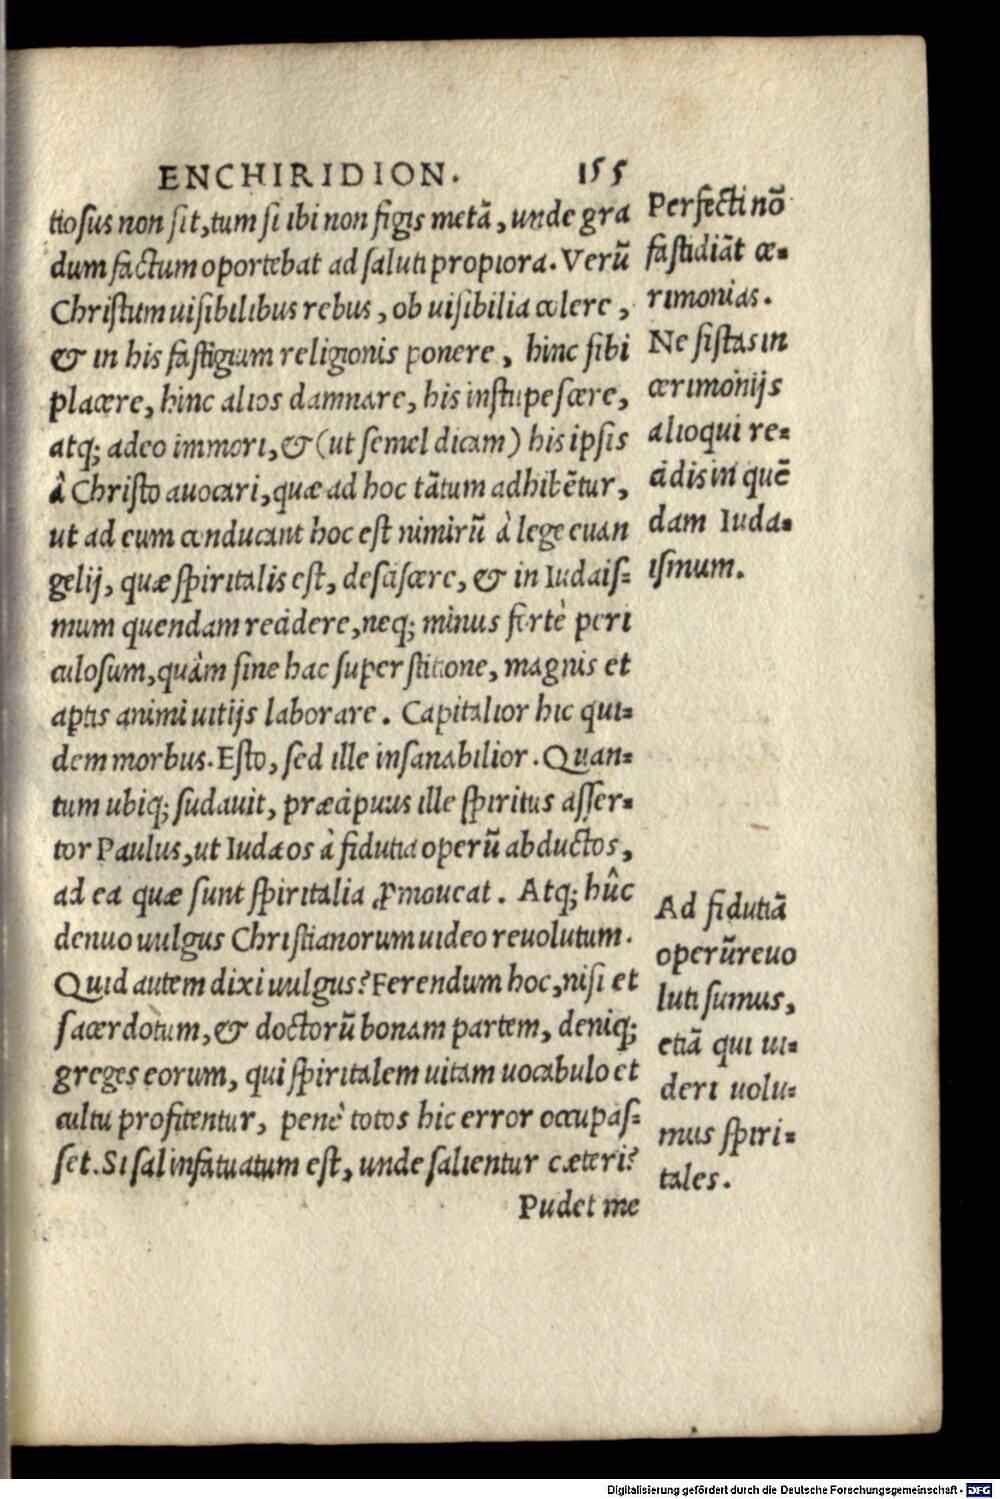 ENCHIRIDION. 155
tiosus non sit, tum si ibi non figis metā, unde gra
dum factum oportebat ad saluti propiora. Verū
Christum uisibilibus rebus, ob uisibilia colere,
& in his fastigium religionis ponere, hinc sibi
placere, hinc alios damnare, his instupescere,
atq; adeo immori, & (ut semel dicam) his ipsis
à Christo auocari, quæ ad hoc tātum adhibētur,
ut ad eum conducant hoc est nimirū à lege euan
gelij, quæ spiritalis est, desciscere, & in Iudais-
mum quendam recidere, neq; minus fortè peri
culosum, quàm sine hac superstitione, magnis et
aptis animi uitijs laborare. Capitalior hic qui-
dem morbus. Esto, sed ille insanabilior. Quan-
tum ubiq; sudauit, præcipuus ille spiritus asser-
tor Paulus, ut Iudæos à fidutia operū abductos,
ad ea quæ sunt spiritalia ꝓmoueat. Atq; hûc
denuo uulgus Christianorum uideo reuolutum.
Quid autem dixi uulgus? Ferendum hoc, nisi et
sacerdotum, & doctorū bonam partem, deniq;
greges eorum, qui spiritalem uitam uocabulo et
cultu profitentur, penè totos hic error occupas-
set. Si sal infatuatum est, unde salientur cæteri?
Pudet me
Perfecti nō
fastidiāt ce-
rimonias.
Ne sistas in
cerimonijs
alioqui re-
cidis in quē
dam Iuda-
ismum.
Ad fidutiā
operū reuo
luti sumus,
etiā qui ui-
deri uolu-
mus spiri-
tales.
Digitalisierung gefördert durch die Deutsche Forschungsgemeinschaft - DFG